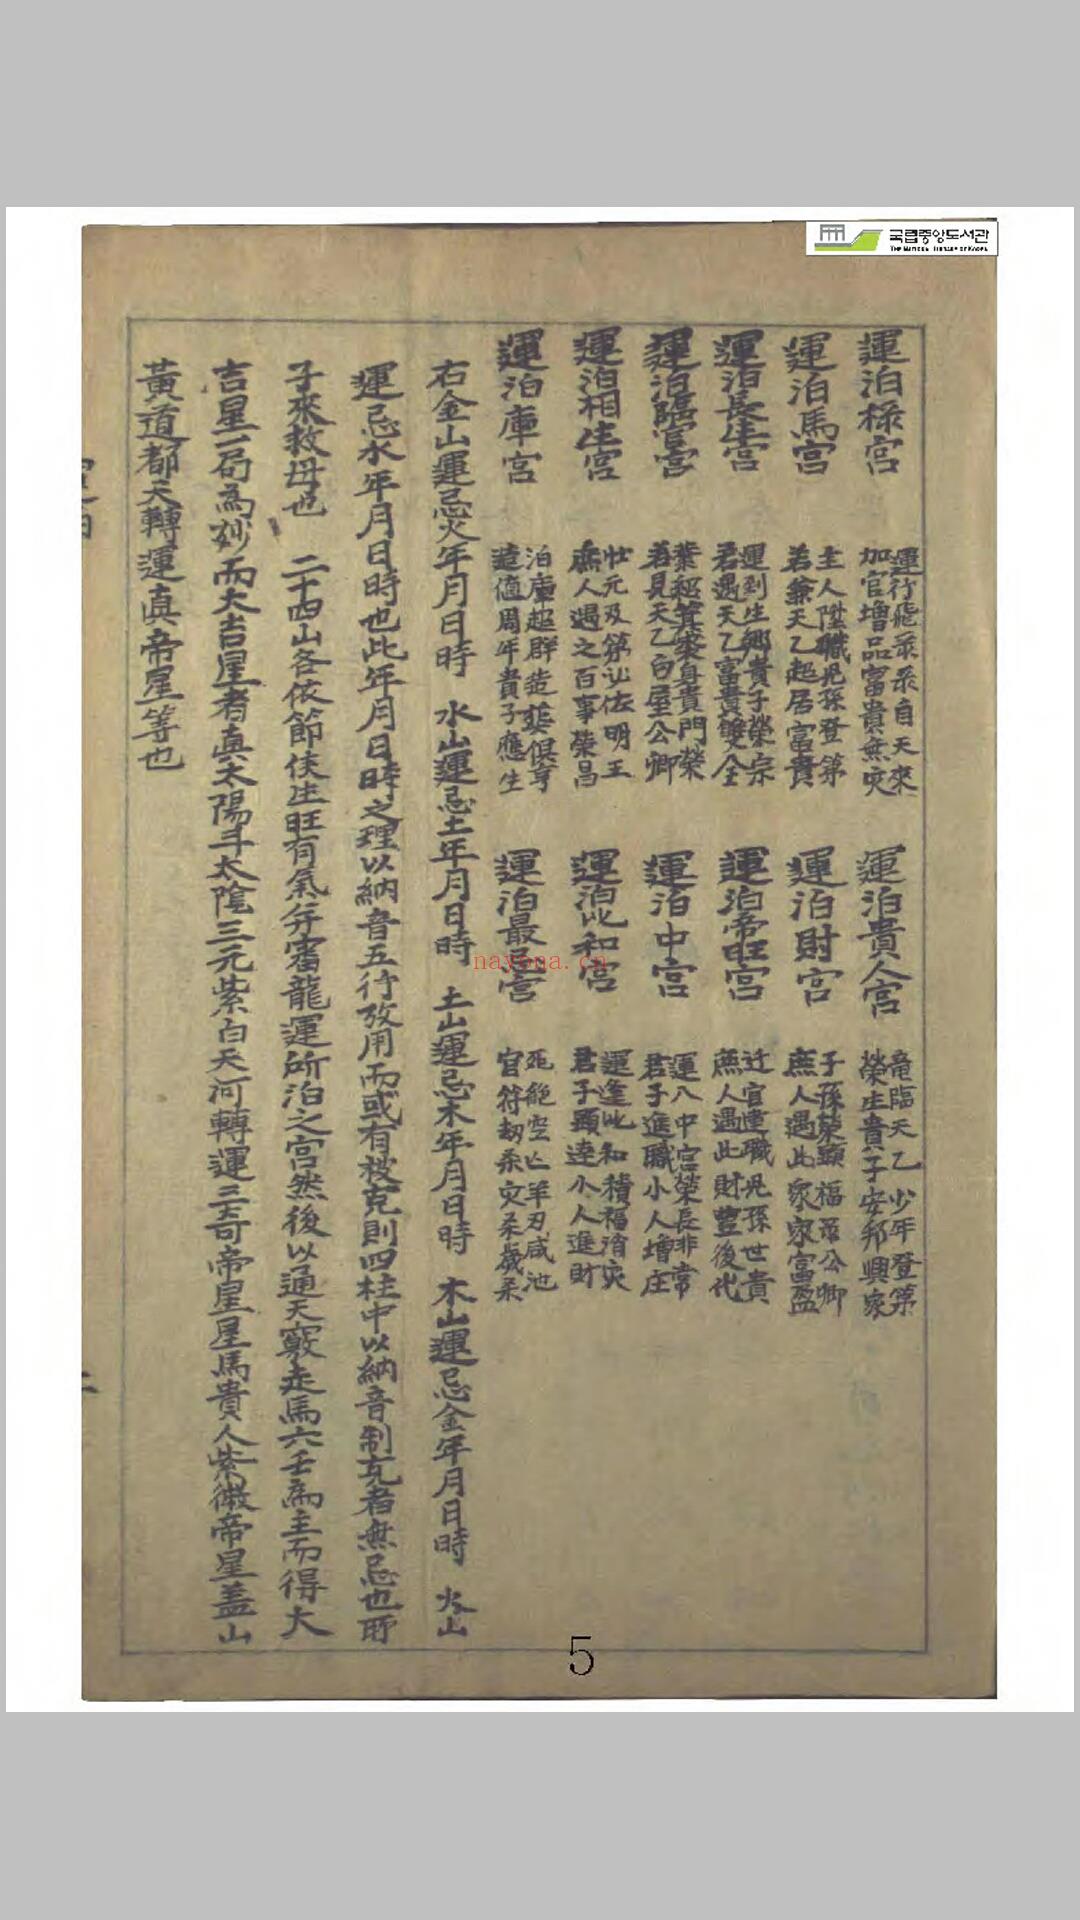 국립중앙도서관
THE NATIONAL LIBRARY OF KOREA
運泊祿宮
運行飛祿祿自天來
加官增品富貴無灾
運泊貴人宮
竜臨天乙少年登第
榮生貴子安邦興家
運泊馬宮
主人陞職児孫登第
若兼天乙起居富貴
運泊財宮
子孫榮顕福 公卿
庶人遇此家家富盈
運泊長生宮
運到生鄉貴子榮宗
君遇天乙富貴雙全
運泊帝旺宮
迁官進職児孫世貴
庶人遇此財豊後代
運泊臨官宮
業紹箕裘身貴門榮
若見天乙白屋公卿
運泊中宮
運八中宮榮長非常
君子進職小人增庄
運泊相生宮
壮元及第必佐明王
庶人遇之百事榮昌
運泊比和宮
運逢比和積福消灾
君子顕達小人進財
運泊庫宮
泊庫超群造葬俱亨
造值周年貴子應生
運泊最 宮
死絶空亡羊刃咸池
官符劫杀灾杀歲杀
右金山運忌火年月日時 水山運忌土年月日時 土山運忌木年月日時 木山運忌金年月日時 火山
運忌水年月日時也此年月日時之理以納音五行攷用而或有被克則四柱中以納音制克者無忌也所
子來救母也 二十四山各依節侯生旺有氣并審龍運所泊之宮然後以通天竅走馬六壬為主而得大
吉星一局為妙而大吉星者真太陽斗太陰三元紫白天河轉運三奇帝星星馬貴人紫微帝星盖山
黃道都天轉運真帝星等也
5
nayona.cn